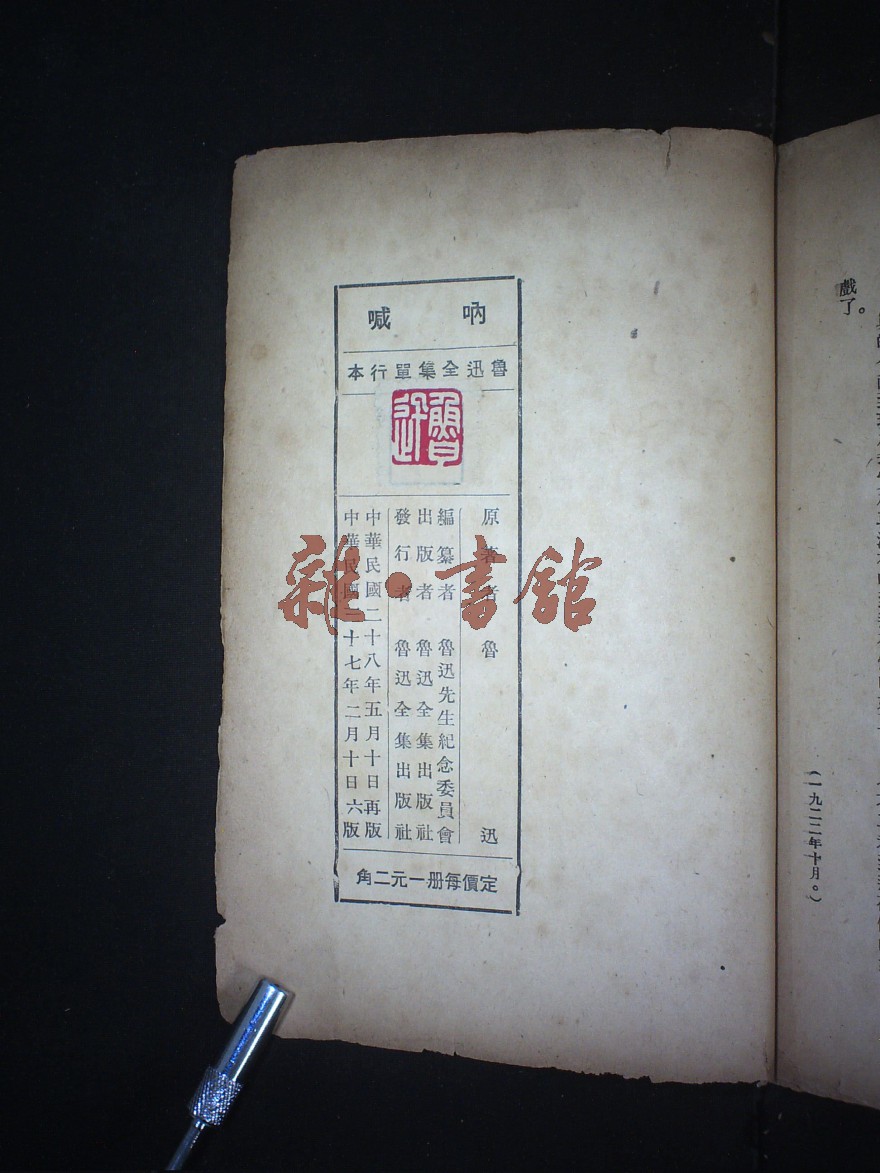 戲了。
(一九二二年十月。)
吶喊
魯迅全集單行本
魯迅
原著者 魯迅
編纂者 魯迅先生紀念委員會
出版者 魯迅全集出版社
發行者 魯迅全集出版社
中華民國二十八年五月十日再版
中華民國十七年二月十日六版
定價每册一元二角
雜·書館